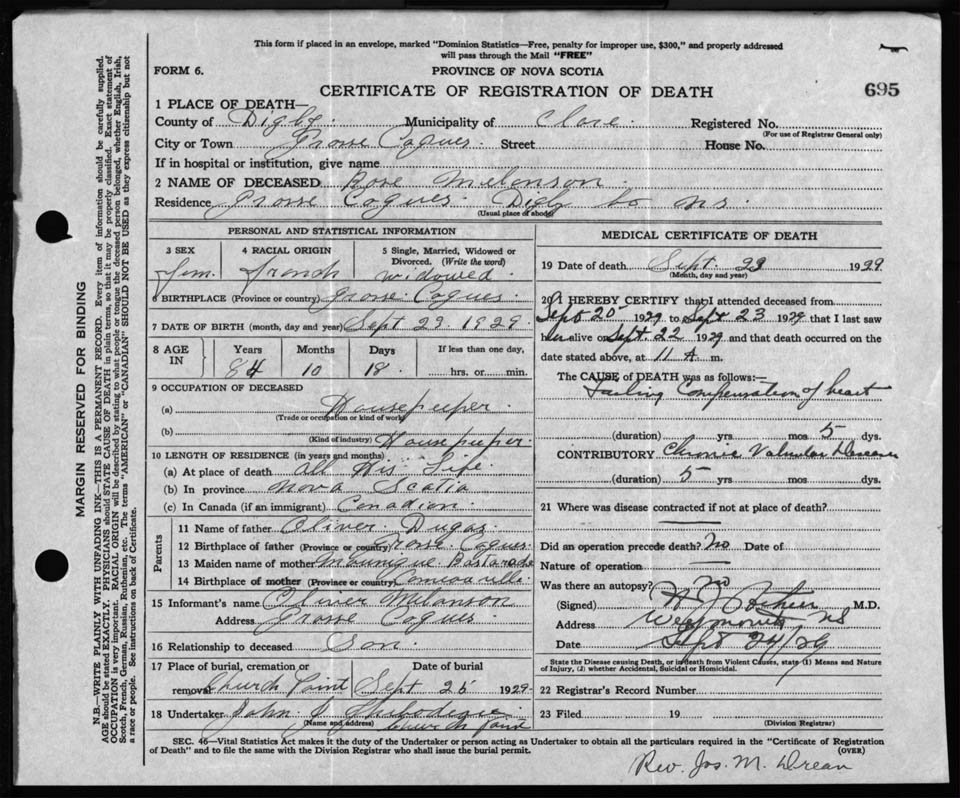 This form if placed in an envelope, marked "Dominion Statistics—Free, penalty for improper use, $300," and properly addressed
will pass through the Mail "FREE"
FORM 6.
PROVINCE OF NOVA SCOTIA
CERTIFICATE OF REGISTRATION OF DEATH
695
1 PLACE OF DEATH—
County of Digby Municipality of Clare Registered No.
(For use of Registrar General only)
City or Town Grosse Coques Street House No.
If in hospital or institution, give name
2 NAME OF DECEASED Rose Melonson
Residence Grosse Coques Digby Co NS
(Usual place of abode)
PERSONAL AND STATISTICAL INFORMATION
3 SEX 4 RACIAL ORIGIN 5 Single, Married, Widowed or
Divorced. (Write the word)
Fem. French widowed
6 BIRTHPLACE (Province or country) Grosse Coques
7 DATE OF BIRTH (month, day and year) Sept 23 1929
8 AGE IN Years Months Days If less than one day,
84 10 18 hrs. or min.
9 OCCUPATION OF DECEASED
(a) Housepeeper
(Trade or occupation or kind of work)
(b) Housepeeper
(Kind of industry)
10 LENGTH OF RESIDENCE (in years and months)
(a) At place of death All His Life
(b) In province Nova Scotia
(c) In Canada (if an immigrant) Canadian
Parents
11 Name of father Oliver Dugas
12 Birthplace of father (Province or country) Grosse Coques
13 Maiden name of mother
14 Birthplace of mother (Province or country) Comeauville
15 Informant's name Oliver Melanson
Address Grosse Coques
16 Relationship to deceased Son
17 Place of burial, cremation or Date of burial
removal Church Point Sept 25 1929
18 Undertaker John J
(Name and address) Church Point
MEDICAL CERTIFICATE OF DEATH
19 Date of death Sept 23 1929
(Month, day and year)
20 I HEREBY CERTIFY that I attended deceased from
Sept 20 1929 to Sept 23 1929 that I last saw
her alive on Sept. 22 1929 and that death occurred on the
date stated above, at 11 A m.
The CAUSE of DEATH was as follows:—
Failing Compensation of heart
(duration) yrs mos 5 dys.
CONTRIBUTORY Chronic Valvular Disease
(duration) 5 yrs. mos. dys.
21 Where was disease contracted if not at place of death?
Did an operation precede death? No Date of
Nature of operation
Was there an autopsy? No
(Signed) M.D.
Address Weymouth NS
Date Sept 24/29
State the Disease causing Death, or in death from Violent Causes, state (1) Means and Nature
of Injury, (2) whether Accidental, Suicidal or Homicidal.
22 Registrar's Record Number
23 Filed 19
(Division Registrar)
SEC. 46—Vital Statistics Act makes it the duty of the Undertaker or person acting as Undertaker to obtain all the particulars required in the "Certificate of Registration
of Death" and to file the same with the Division Registrar who shall issue the burial permit. (OVER)
Rev. Jos. M.
MARGIN RESERVED FOR BINDING
N.B.—WRITE PLAINLY WITH UNFADING INK—THIS IS A PERMANENT RECORD. Every item of information should be carefully supplied.
AGE should be stated EXACTLY. PHYSICIANS should STATE CAUSE OF DEATH in plain terms, so that it may be properly classified. Exact statement of
OCCUPATION is very important. RACIAL ORIGIN will be described by stating to what people or tongue the deceased person belonged, whether English, Irish,
Scotch, French, German, Russian, Ruthenian, etc. The terms "AMERICAN" or "CANADIAN" SHOULD NOT BE USED as they express citizenship but not
a race or people. See instructions on back of Certificate.